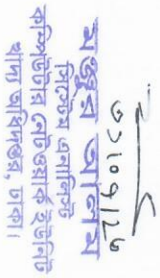 ৩১।০৭।১৬
মঞ্জুর আলম
সিস্টেম এনালিস্ট
কম্পিউটার নেটওয়ার্ক ইউনিট
খাদ্য অধিদপ্তর, ঢাকা।